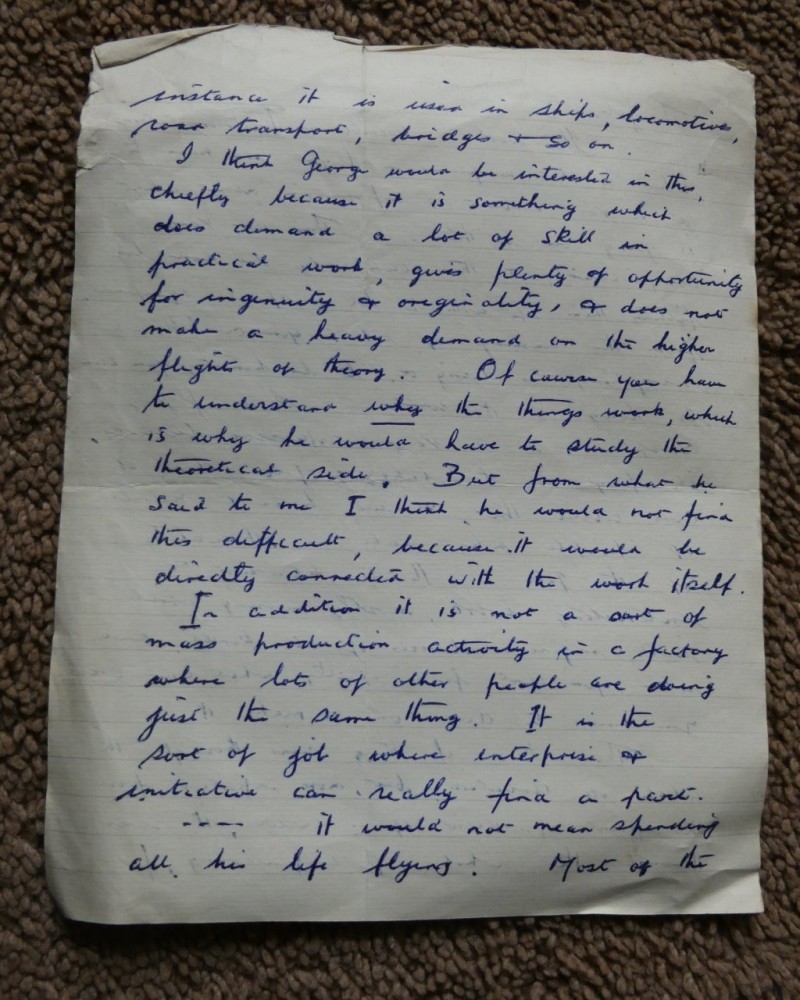 instance it is used in ships, locomotives,
road transport, bridges + so on.
I think George would be interested in this,
chiefly because it is something which
does demand a lot of skill in
practical work, gives plenty of opportunity
for ingenuity & originality, & does not
make a heavy demand on the higher
flights of theory. Of course you have
to understand why the things work, which
is why he would have to study the
theoretical side. But from what he
said to me I think he would not find
this difficult, because it would be
directly connected with the work itself.
In addition it is not a sort of
mass production activity in a factory
where lots of other people are doing
just the same thing. It is the
sort of job where enterprise &
initiative can really find a part.
---- it would not mean spending
all his life flying. Most of the